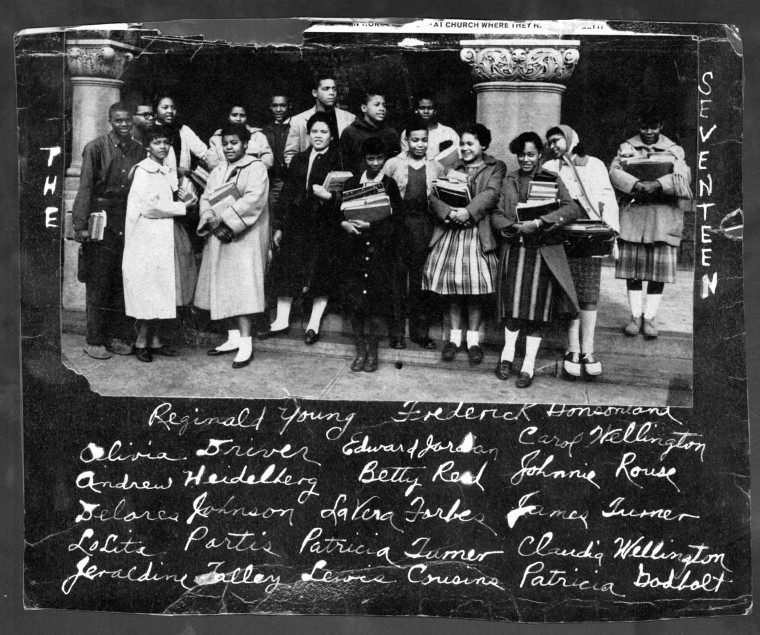 AT CHURCH WHERE THEY
THE
SEVENTEEN
Reginald Young Frederick
Olivia Driver Edward Jordan Carol Wellington
Andrew Heidelberg Betty Reed Johnnie Rouse
Delores Johnson LaVera Forbes James Turner
LoLita Portis Patricia Turner Claudia Wellington
Geraldine Talley Lewis Cousins Patricia Godbolt